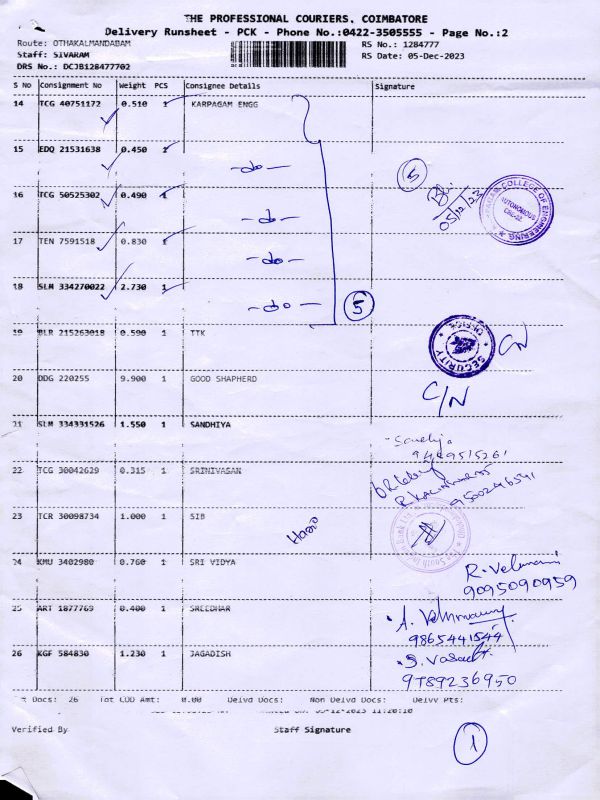 THE PROFESSIONAL COURIERS, COIMBATORE
Delivery Runsheet - PCK - Phone No.:0422-3505555 - Page No.:2
Route: OTHAKALMANDABAM
Staff: SIVARAM
DRS No.: DCJB128477702
RS No.: 1284777
RS Date: 05-Dec-2023
S No Consignment No Weight PCS Consignee Details Signature
14 TCG 40751172 0.510 1 KARPAGAM ENGG
15 EDQ 21531638 0.450 1 -do-
16 TCG 50525302 0.490 1 -do-
17 TEN 7591518 0.830 1 -do-
18 SLM 334270022 2.730 1 -do-
5
5
05/12/23
COLLEGE OF ENGINEERING
AUTONOMOUS
19 BLR 215263018 0.590 1 TTK
SECURITY OFFICE
C/N
20 DDG 220255 9.900 1 GOOD SHAPHERD
C/N
21 SLM 334331526 1.550 1 SANDHIYA
22 TCG 30042629 0.315 1 SRINIVASAN
9500246591
23 TCR 30098734 1.000 1 SIB
The South Indian Bank Ltd
24 KMU 3402980 0.760 1 SRI VIDYA
R. Velmani
9095090959
25 ART 1877769 0.400 1 SREEDHAR
9865441544
26 KGF 584830 1.230 1 JAGADISH
S. Vasanth
9789236950
Docs: 26 Tot COD Amt: 0.00 Delvd Docs: Non Delvd Docs: Delvy Pts:
05-12-2023 11:20:10
Verified By Staff Signature
1